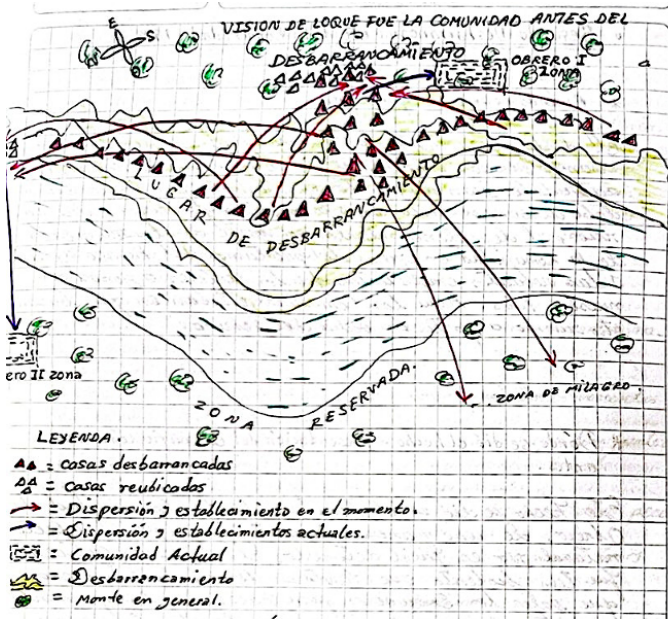 VISION DE LO QUE FUE LA COMUNIDAD ANTES DEL
DESBARRANCAMIENTO
E
S
OBRERO I
ZONA
LUGAR DE DESBARRANCAMIENTO
ero II zona
ZONA RESERVADA.
ZONA DE MILAGRO.
LEYENDA.
= casas desbarrancadas
= casas reubicadas
= Dispersión y establecimiento en el momento.
= Dispersión y establecimientos actuales.
= Comunidad Actual
= Desbarrancamiento
= Monte en general.